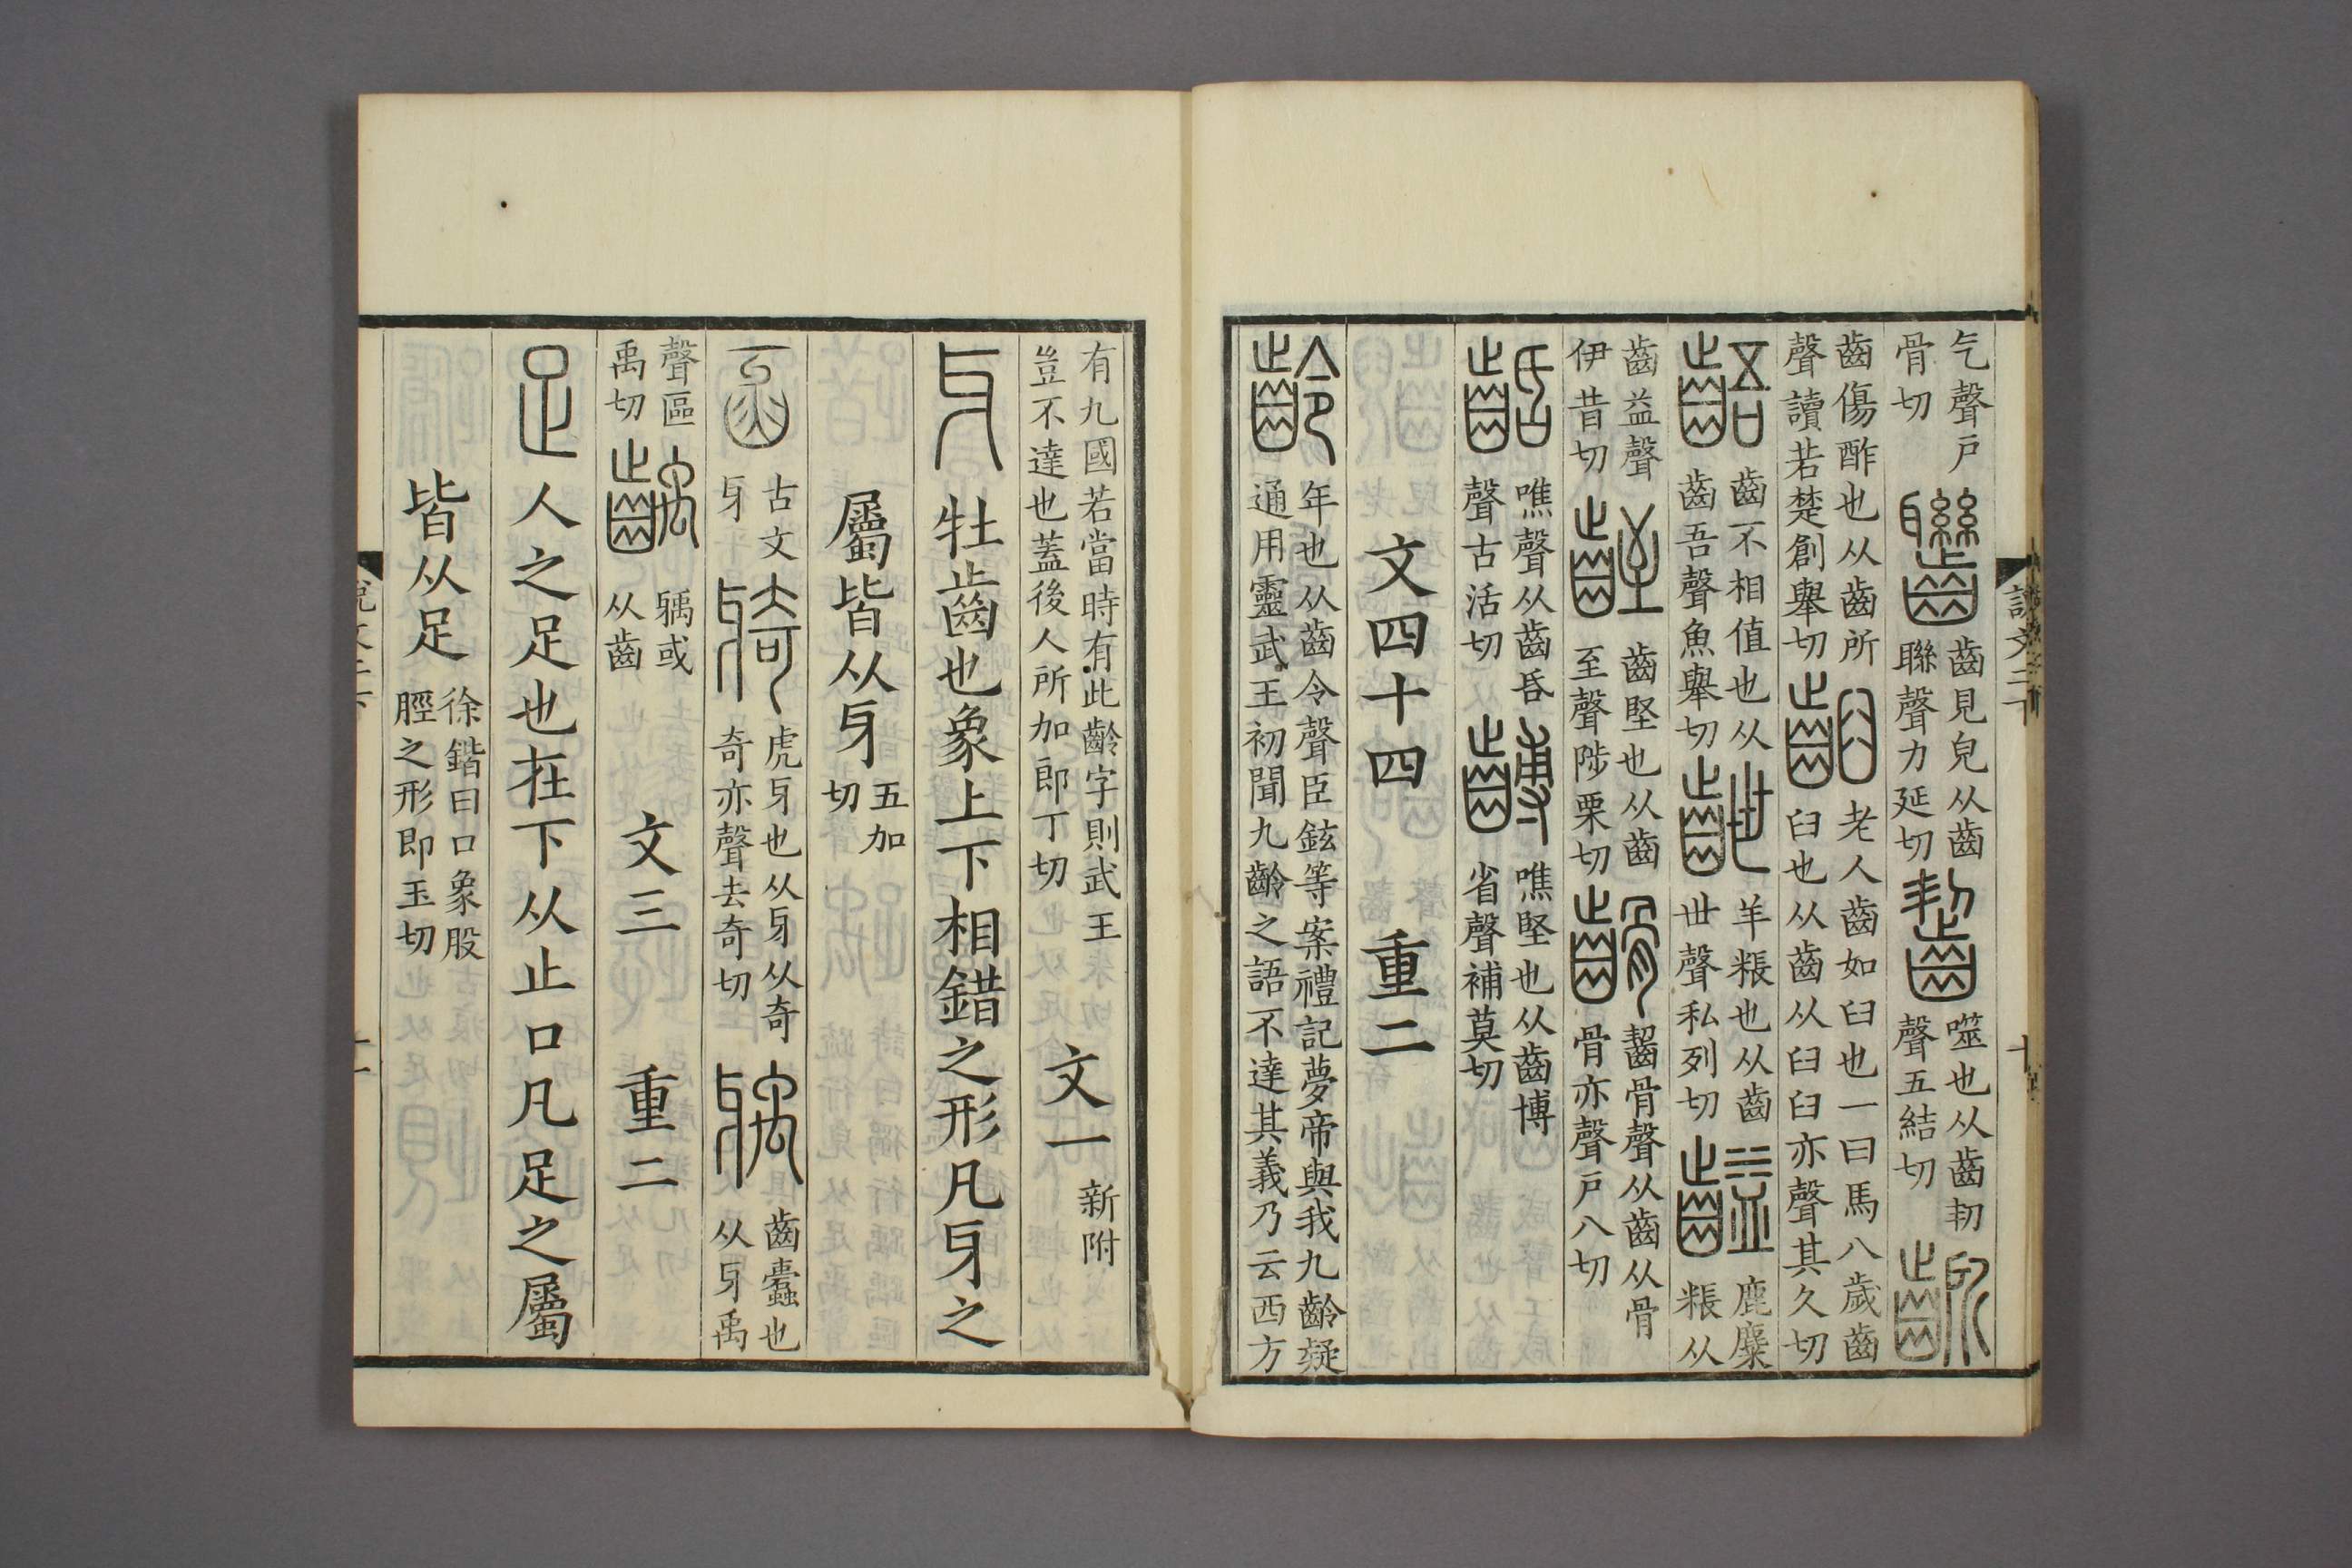 气聲戶骨切 齒見皃从齒聯聲力延切 齧 噬也从齒㓞聲五結切
齒傷酢也从齒所聲讀若楚創舉切 齨 老人齒如臼也一曰馬八歲齒臼也从齒从臼臼亦聲其久切
齬 齒不相值也从齒吾聲魚舉切 齛 羊粻也从齒世聲私列切 齸 鹿麋粻从
齒益聲伊昔切 齒堅也从齒至聲陟栗切 齧骨聲从齒从骨骨亦聲戶八切
噍聲从齒昏聲古活切 噍堅也从齒博省聲補莫切
文四十四 重二
齡 年也从齒令聲臣鉉等案禮記夢帝與我九齡疑通用靈武王初聞九齡之語不達其義乃云西方
有九國若當時有此齡字則武王豈不達也蓋後人所加郎丁切 文一 新附
牙 牡齒也象上下相錯之形凡牙之
屬皆从牙 五加切
古文牙 虎牙也从牙从奇奇亦聲去奇切 齒蠹也从牙禹
聲區禹切 齲 𤘐或从齒 文三 重二
足 人之足也在下从止口凡足之屬
皆从足 徐鍇曰口象股脛之形即玉切